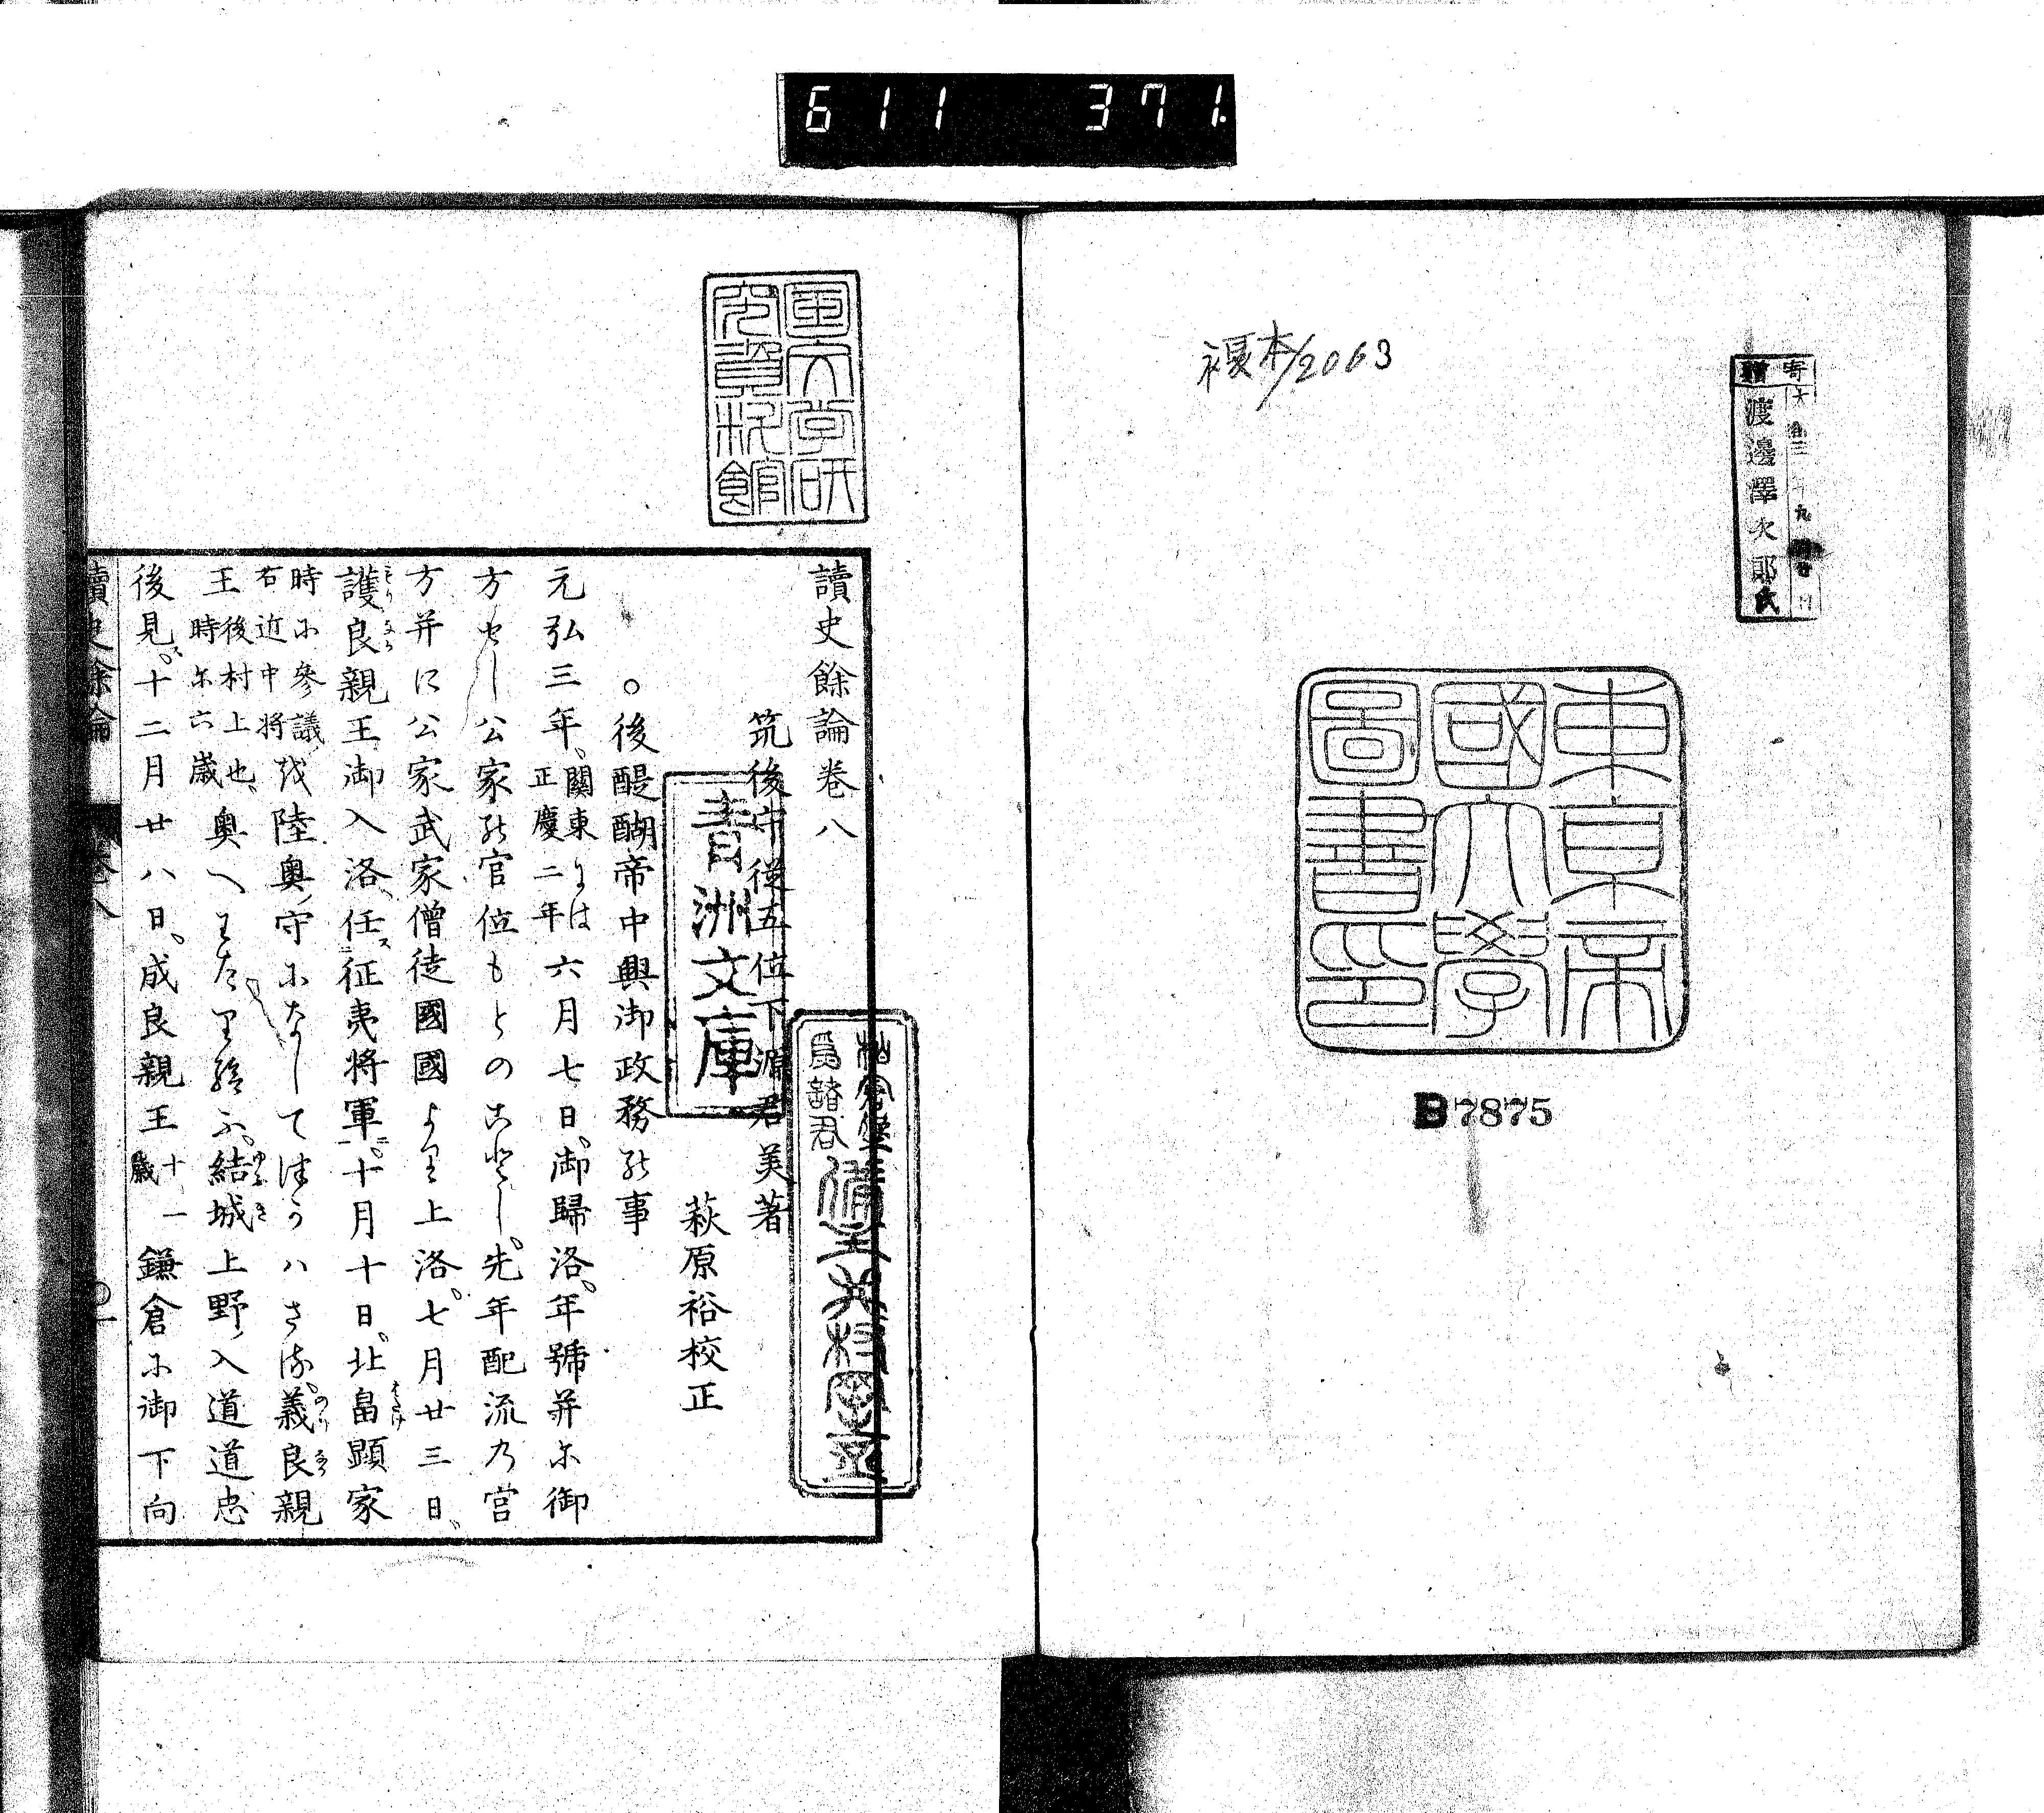 611 371.
複本/2063
寄贈
渡邊澤次郎氏
東京帝
國大學
圖書印
B7875
國文学研
究資料館
青洲文庫
讀史餘論卷八
筑後守從五位下源君美著
萩原裕校正
○後醍醐帝中興御政務能事
元弘三年、關東には正慶二年六月七日、御歸洛。年號并尓御
方せし公家能官位もとのことし。先年配流乃宮
方并に公家武家僧徒國國より上洛。七月廿三日、
護良親王御入洛、任ス征夷將軍ニ。十月十日、北畠顯家
時尓參議右近中将越陸奥ノ守尓なして津かハさる。義良親
王後村上也、時尓六歳奥へわたり給ふ。結城上野ノ入道道忠
後見ス。十二月廿八日、成良親王十一歳鎌倉尓御下向
讀史餘論 卷八 〇一